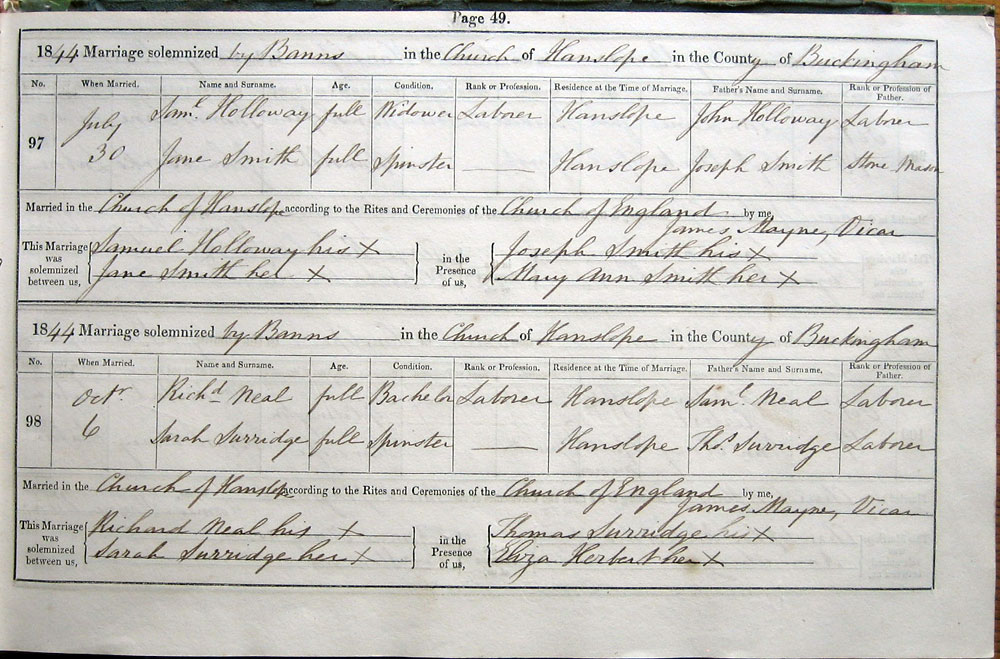 Page 49.
1844 Marriage solemnized by Banns in the Church of Hanslope in the County of Buckingham
No. When Married. Name and Surname. Age. Condition. Rank or Profession. Residence at the Time of Marriage. Father's Name and Surname. Rank or Profession of Father.
97 July 30 Saml. Holloway full Widower Laborer Hanslope John Holloway Laborer
Jane Smith full Spinster — Hanslope Joseph Smith Stone Mason
Married in the Church of Hanslope according to the Rites and Ceremonies of the Church of England by me,
James Mayne, Vicar
This Marriage was solemnized between us, Samuel Holloway his X in the Presence of us, Joseph Smith his X
Jane Smith her X Mary Ann Smith her X
1844 Marriage solemnized by Banns in the Church of Hanslope in the County of Buckingham
No. When Married. Name and Surname. Age. Condition. Rank or Profession. Residence at the Time of Marriage. Father's Name and Surname. Rank or Profession of Father.
98 Octr 6 Richd Neal full Bachelor Laborer Hanslope Saml. Neal Laborer
Sarah Surridge full Spinster — Hanslope Thos. Surridge Laborer
Married in the Church of Hanslope according to the Rites and Ceremonies of the Church of England by me,
James Mayne, Vicar
This Marriage was solemnized between us, Richard Neal his X in the Presence of us, Thomas Surridge his X
Sarah Surridge her X Eliza Herbert her X